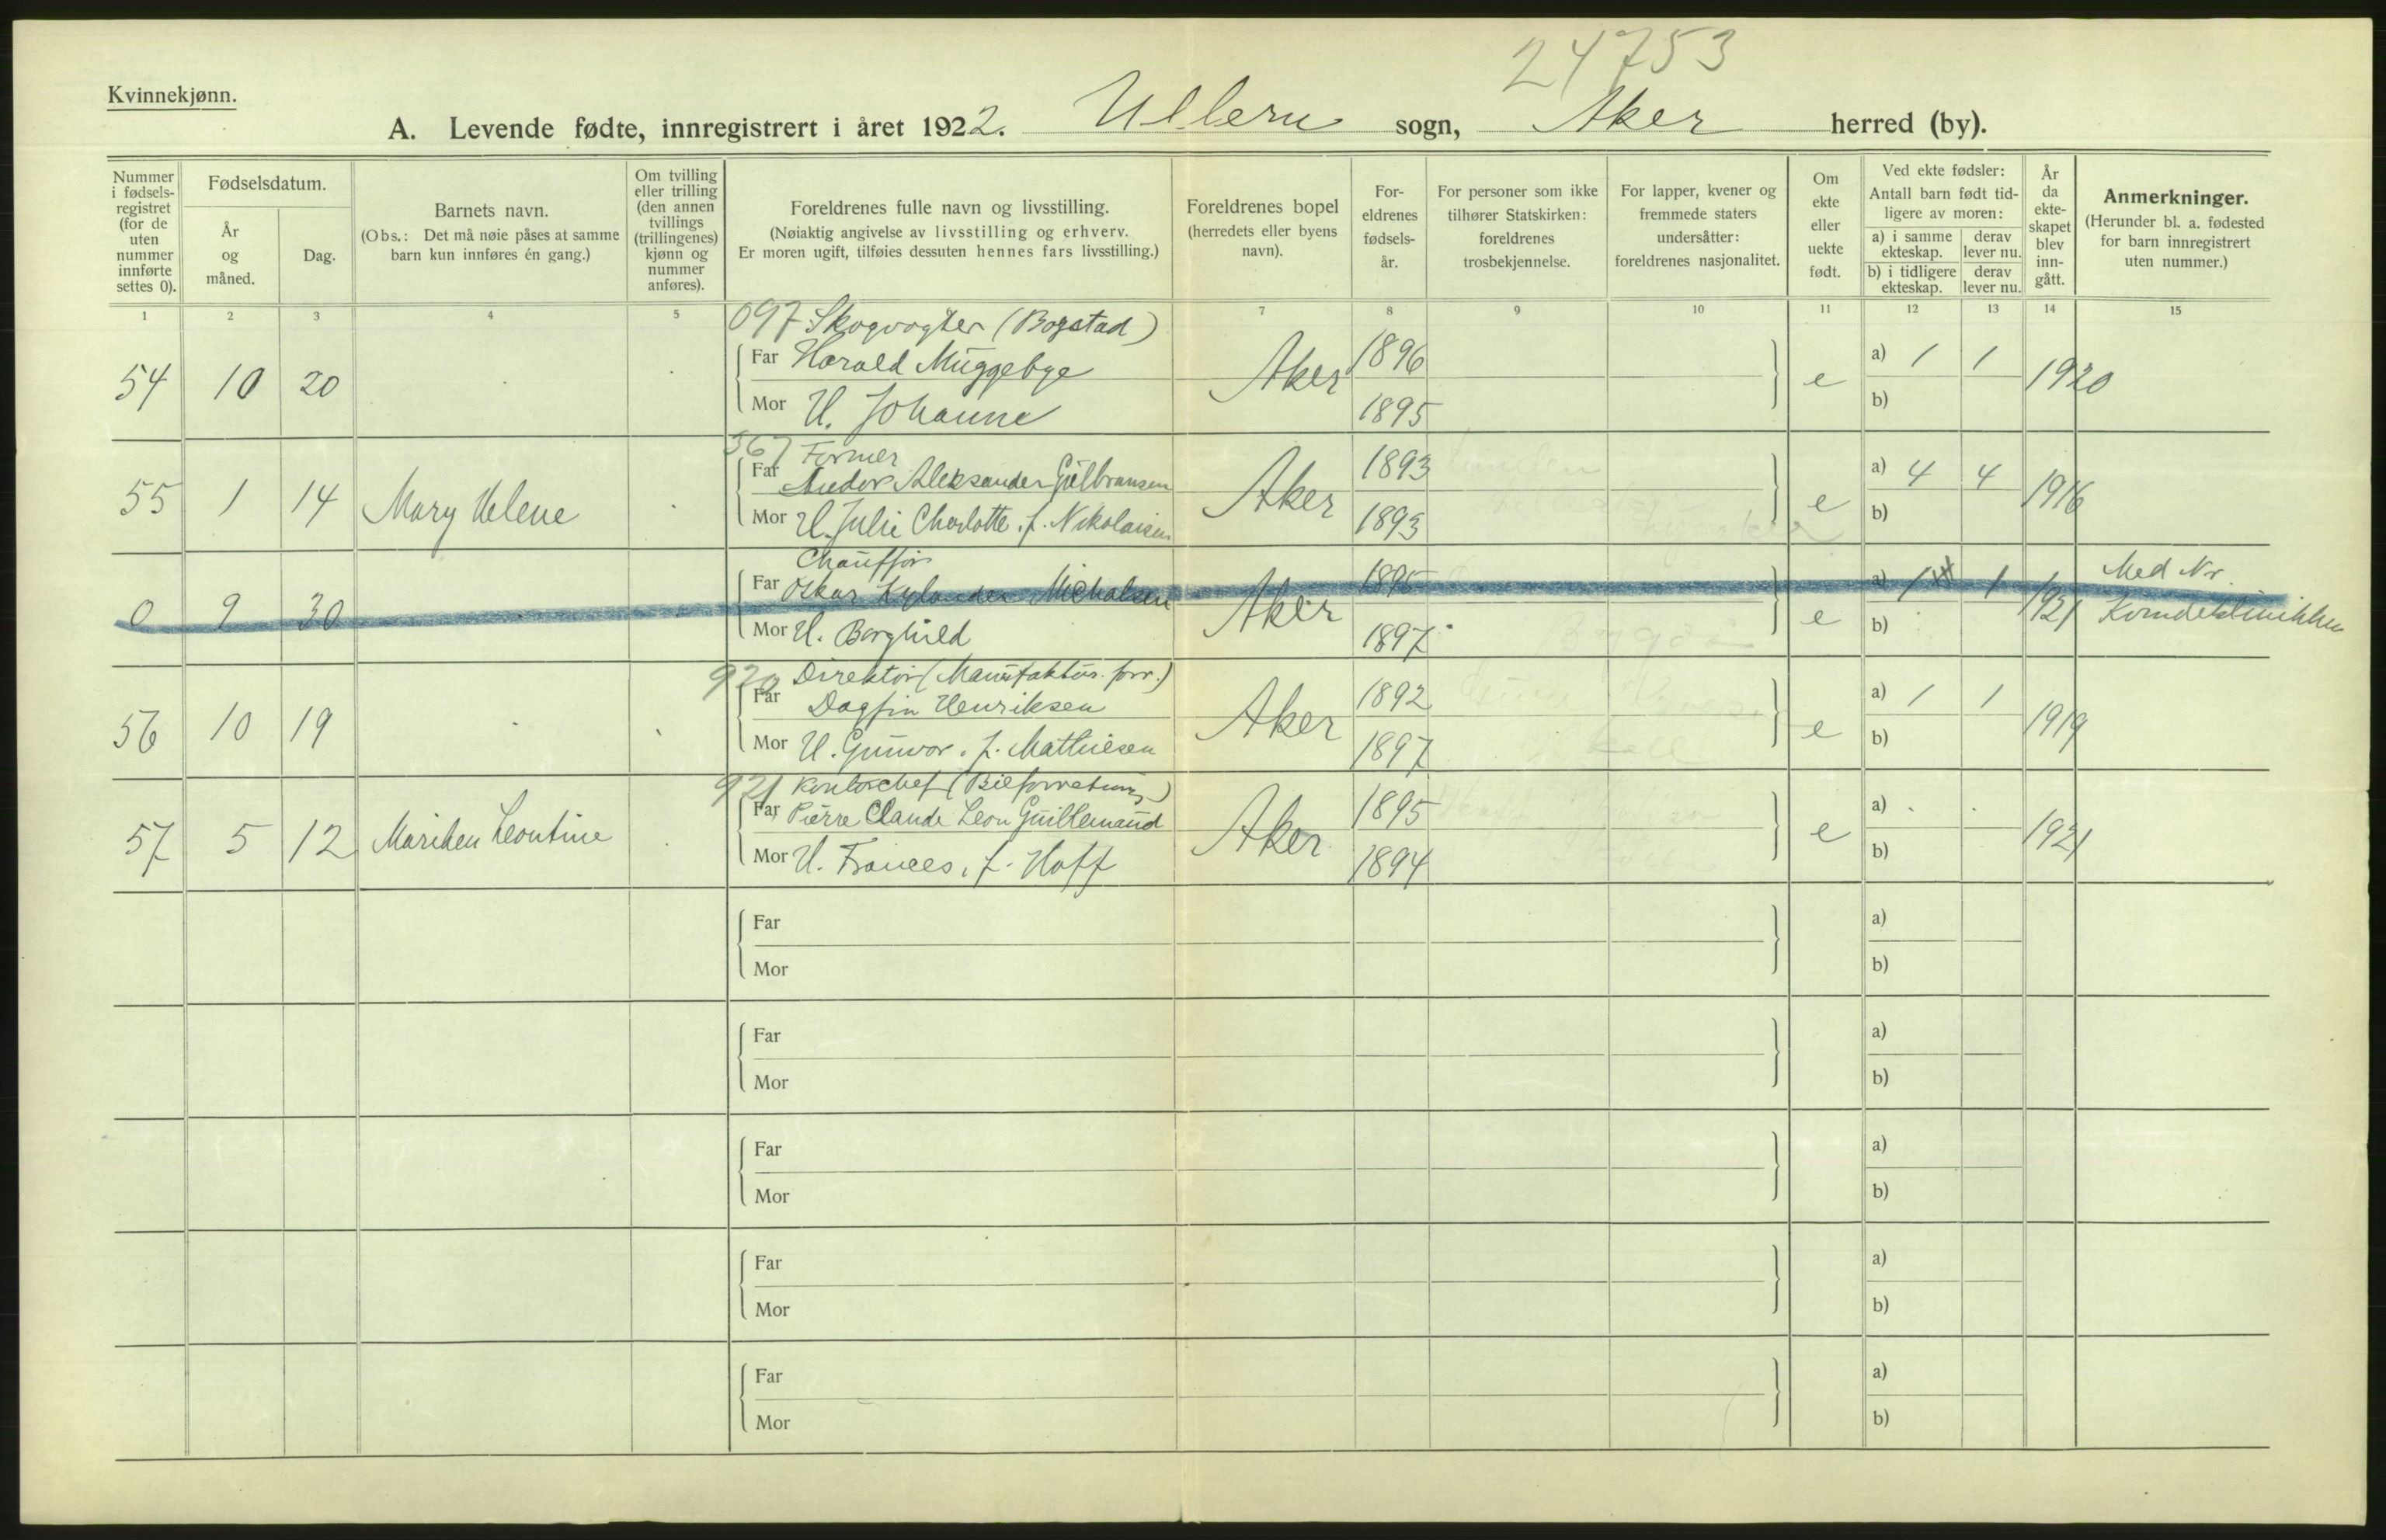 24753
Kvinnekjønn.
A. Levende fødte, innregistrert i året 1922. Ullern sogn, Aker herred (by).
Nummer i fødsels-registret (for de uten nummer innførte settes 0).
Fødselsdatum.
År og måned.
Dag.
Barnets navn.
(Obs.: Det må nøie påses at samme barn kun innføres én gang.)
Om tvilling eller trilling (den annen tvillings (trillingenes) kjønn og nummer anføres).
Foreldrenes fulle navn og livsstilling.
(Nøiaktig angivelse av livsstilling og erhverv.
Er moren ugift, tilføies dessuten hennes fars livsstilling.)
Foreldrenes bopel (herredets eller byens navn).
For-eldrenes fødsels-år.
For personer som ikke tilhører Statskirken: foreldrenes trosbekjennelse.
For lapper, kvener og fremmede staters undersåtter: foreldrenes nasjonalitet.
Om ekte eller uekte født.
Ved ekte fødsler:
Antall barn født tid-ligere av moren:
a) i samme ekteskap.
derav lever nu.
b) i tidligere ekteskap.
derav lever nu.
År da ekte-skapet blev inn-gått.
Anmerkninger.
(Herunder bl. a. fødested for barn innregistrert uten nummer.)
1 2 3 4 5 7 8 9 10 11 12 13 14 15
097 Skogvogter (Bogstad)
54 10 20 Far Harald Muggebye Aker 1896 e a) 1 1 1920
Mor H. Johanne 1895 b)
367 Former
55 1 14 Mary Helene Far Andor Aleksander Gulbransen Aker 1893 e a) 4 4 1916
Mor H. Julie Charlotte, f. Nikolaisen 1893 b)
Chauffør
0 9 30 Far Oskar Michalsen Aker 1895 e a) 1 1 1921 Med Nr.
Mor H. Borghild 1897 b) Kvindeklinikken
920 Direktør (Manufaktur. forr.)
56 10 19 Far Dagfin Henriksen Aker 1892 e a) 1 1 1919
Mor H. Gunvor, f. Mathiesen 1897 b)
921 Kontorchef (Bilforretning)
57 5 12 Mariken Leontine Far Pierre Claude Leon Guillemaud Aker 1895 e a) 1921
Mor H. Frances, f. Hoff 1894 b)
Far a)
Mor b)
Far a)
Mor b)
Far a)
Mor b)
Far a)
Mor b)
Far a)
Mor b)